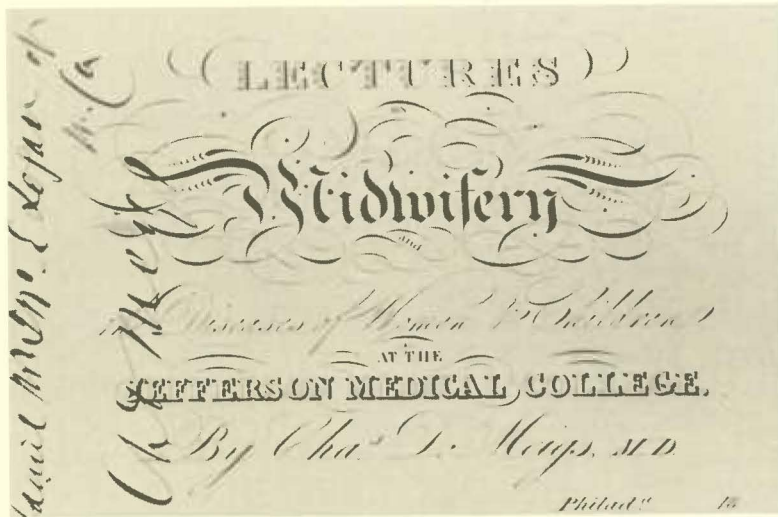 LECTURES
Midwifery
and
the Diseases of Women & Children
AT THE
JEFFERSON MEDICAL COLLEGE.
By Chas. D. Meigs, M.D.
Philada. 18
Logan of
Ch D Meigs